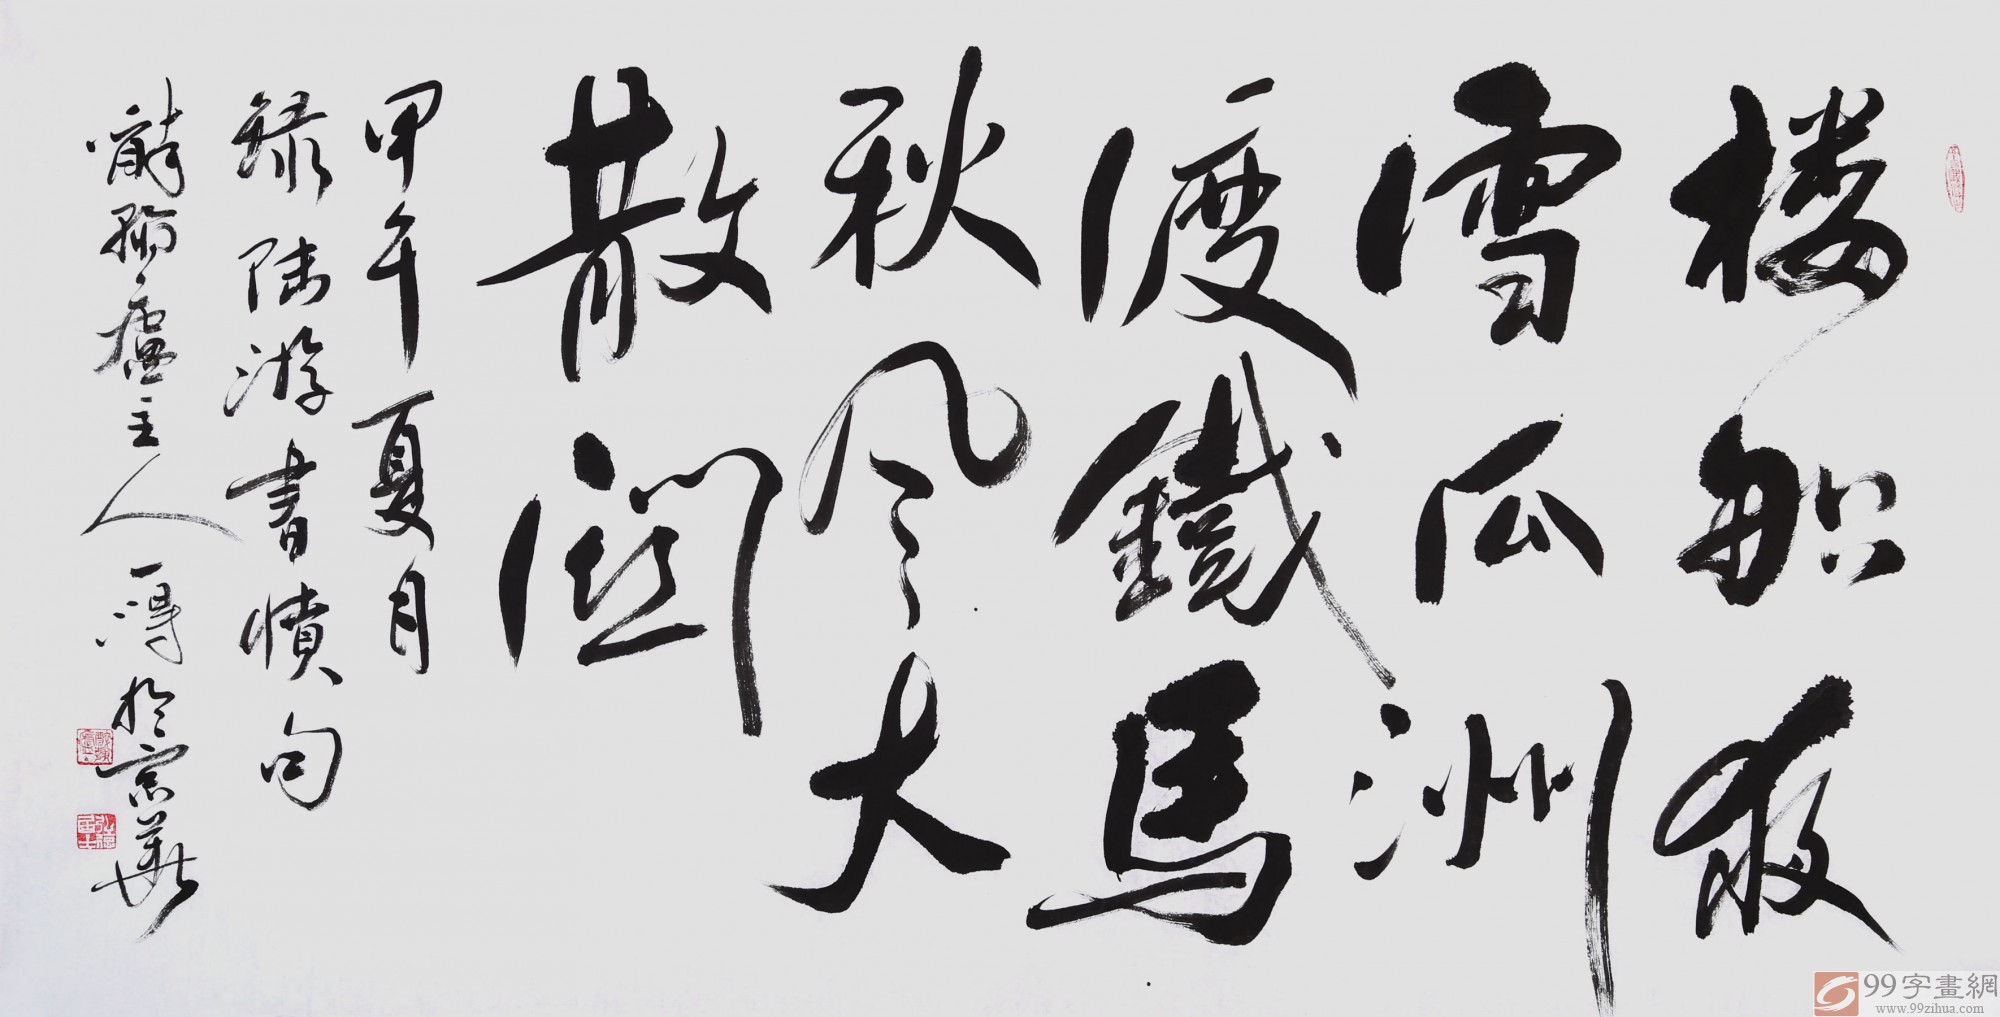 楼船夜
雪瓜洲
渡鐵馬
秋风大
散關
甲午夏月
録陆游書憤句
主人一得於京華
99字畫網
www.99zihua.com